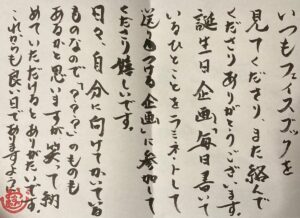 いつもフェイスブックを
見てくださり、また絡んで
くださりありがとうございます。
誕生日企画「毎日書いて
いるひとことをラミネートして
送りつける企画」に参加して
くださり嬉しいです。
日々、自分に向けてかいて
ものなので、「???」のものも
あるかと思いますが笑って納
めていただけるとありがたいです。
これからも良い日でありますよう